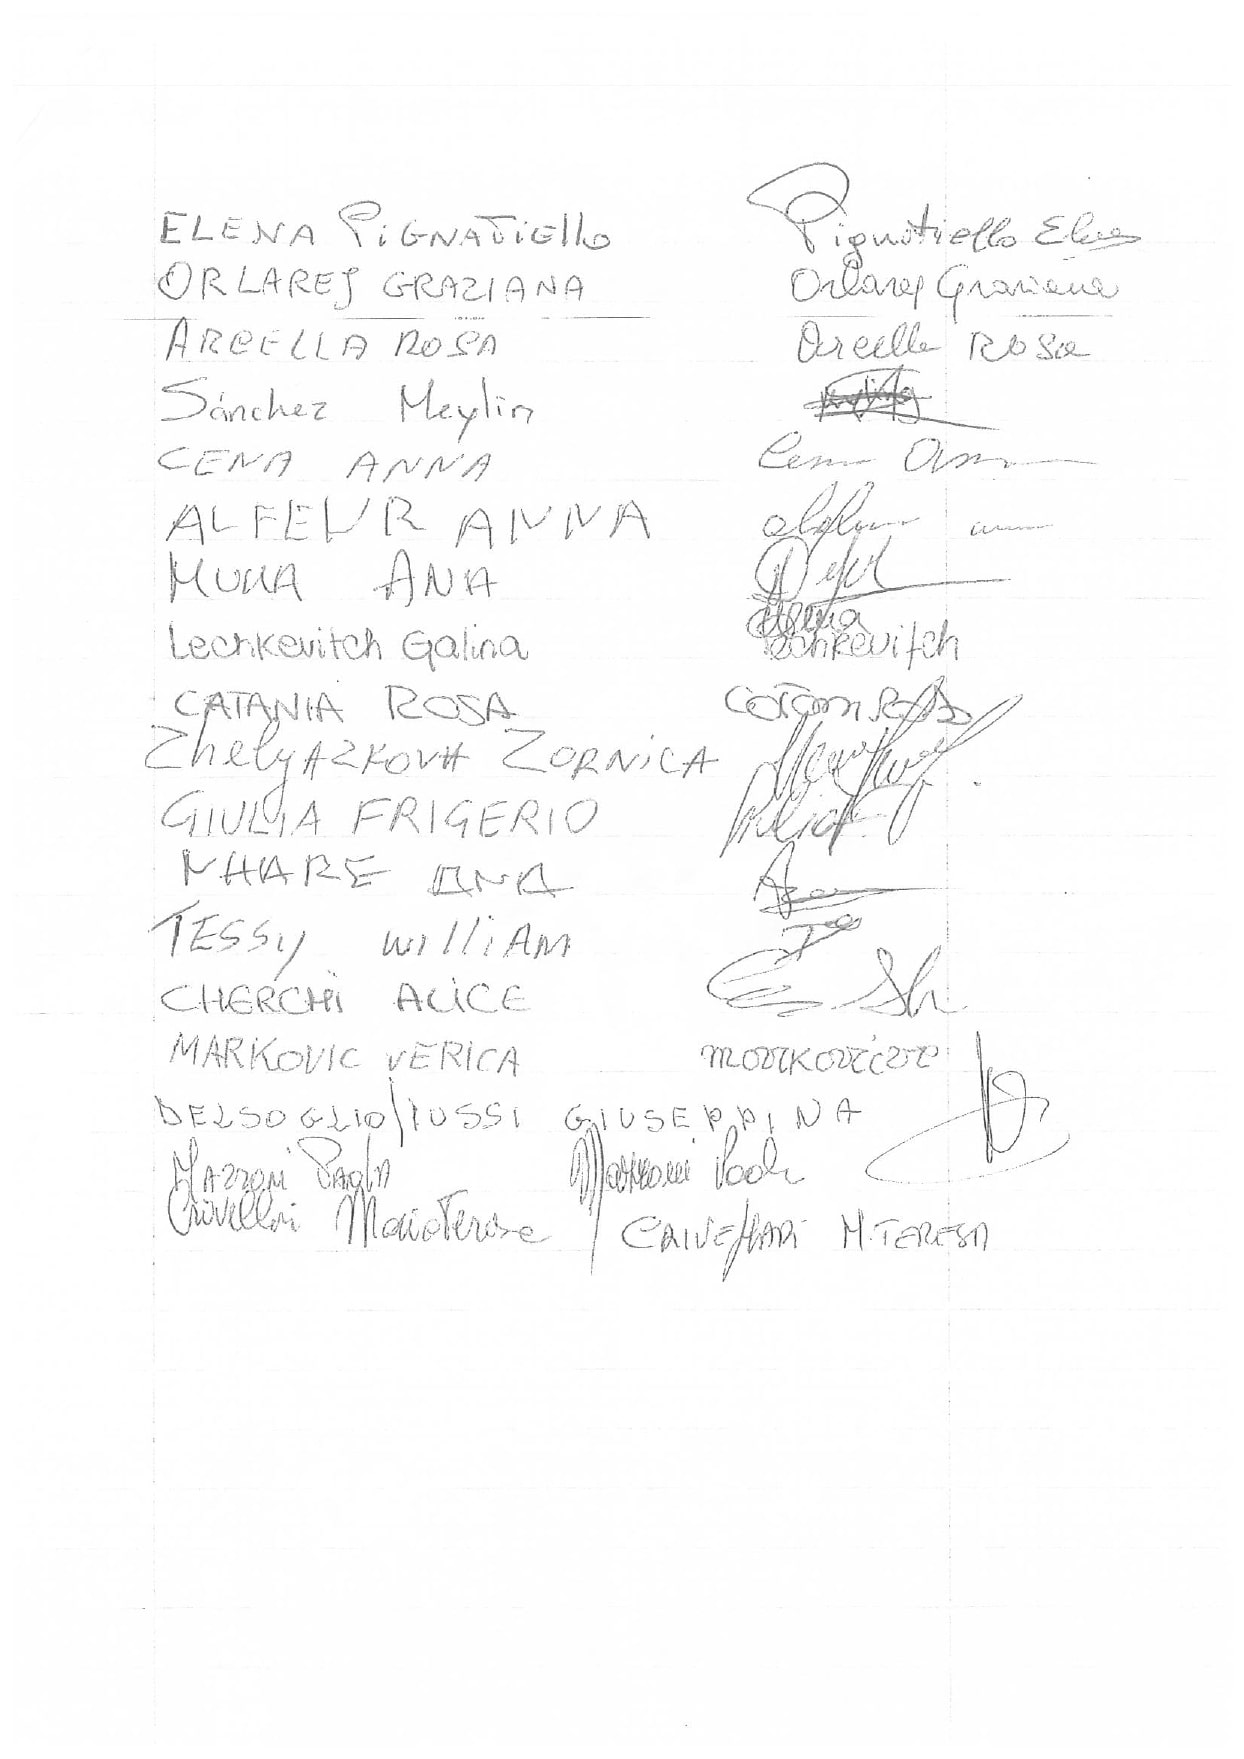 ELENA PIGNATIELLO Pignatiello Elena
ORLAREJ GRAZIANA Orlarej Graziana
ARCELLA ROSA Arcella ROSA
Sánchez Meylin
CENA ANNA Cena Anna
ALFEUR ANNA
MUKA ANA
Lechkevitch Galina Lechkevitch
CATANIA ROSA CATANIA ROSA
ZhelyAZKOVA ZORNICA
GIULIA FRIGERIO Giulia
NHARE ANA
TESSY WILLIAM
CHERCHI ALICE
MARKOVIC VERICA
DELSOGLIO/IUSSI GIUSEPPINA
MAZZONI PAOLA Mazzoni Paola
Crivellari Maria Teresa CRIVEllARI M.TERESA